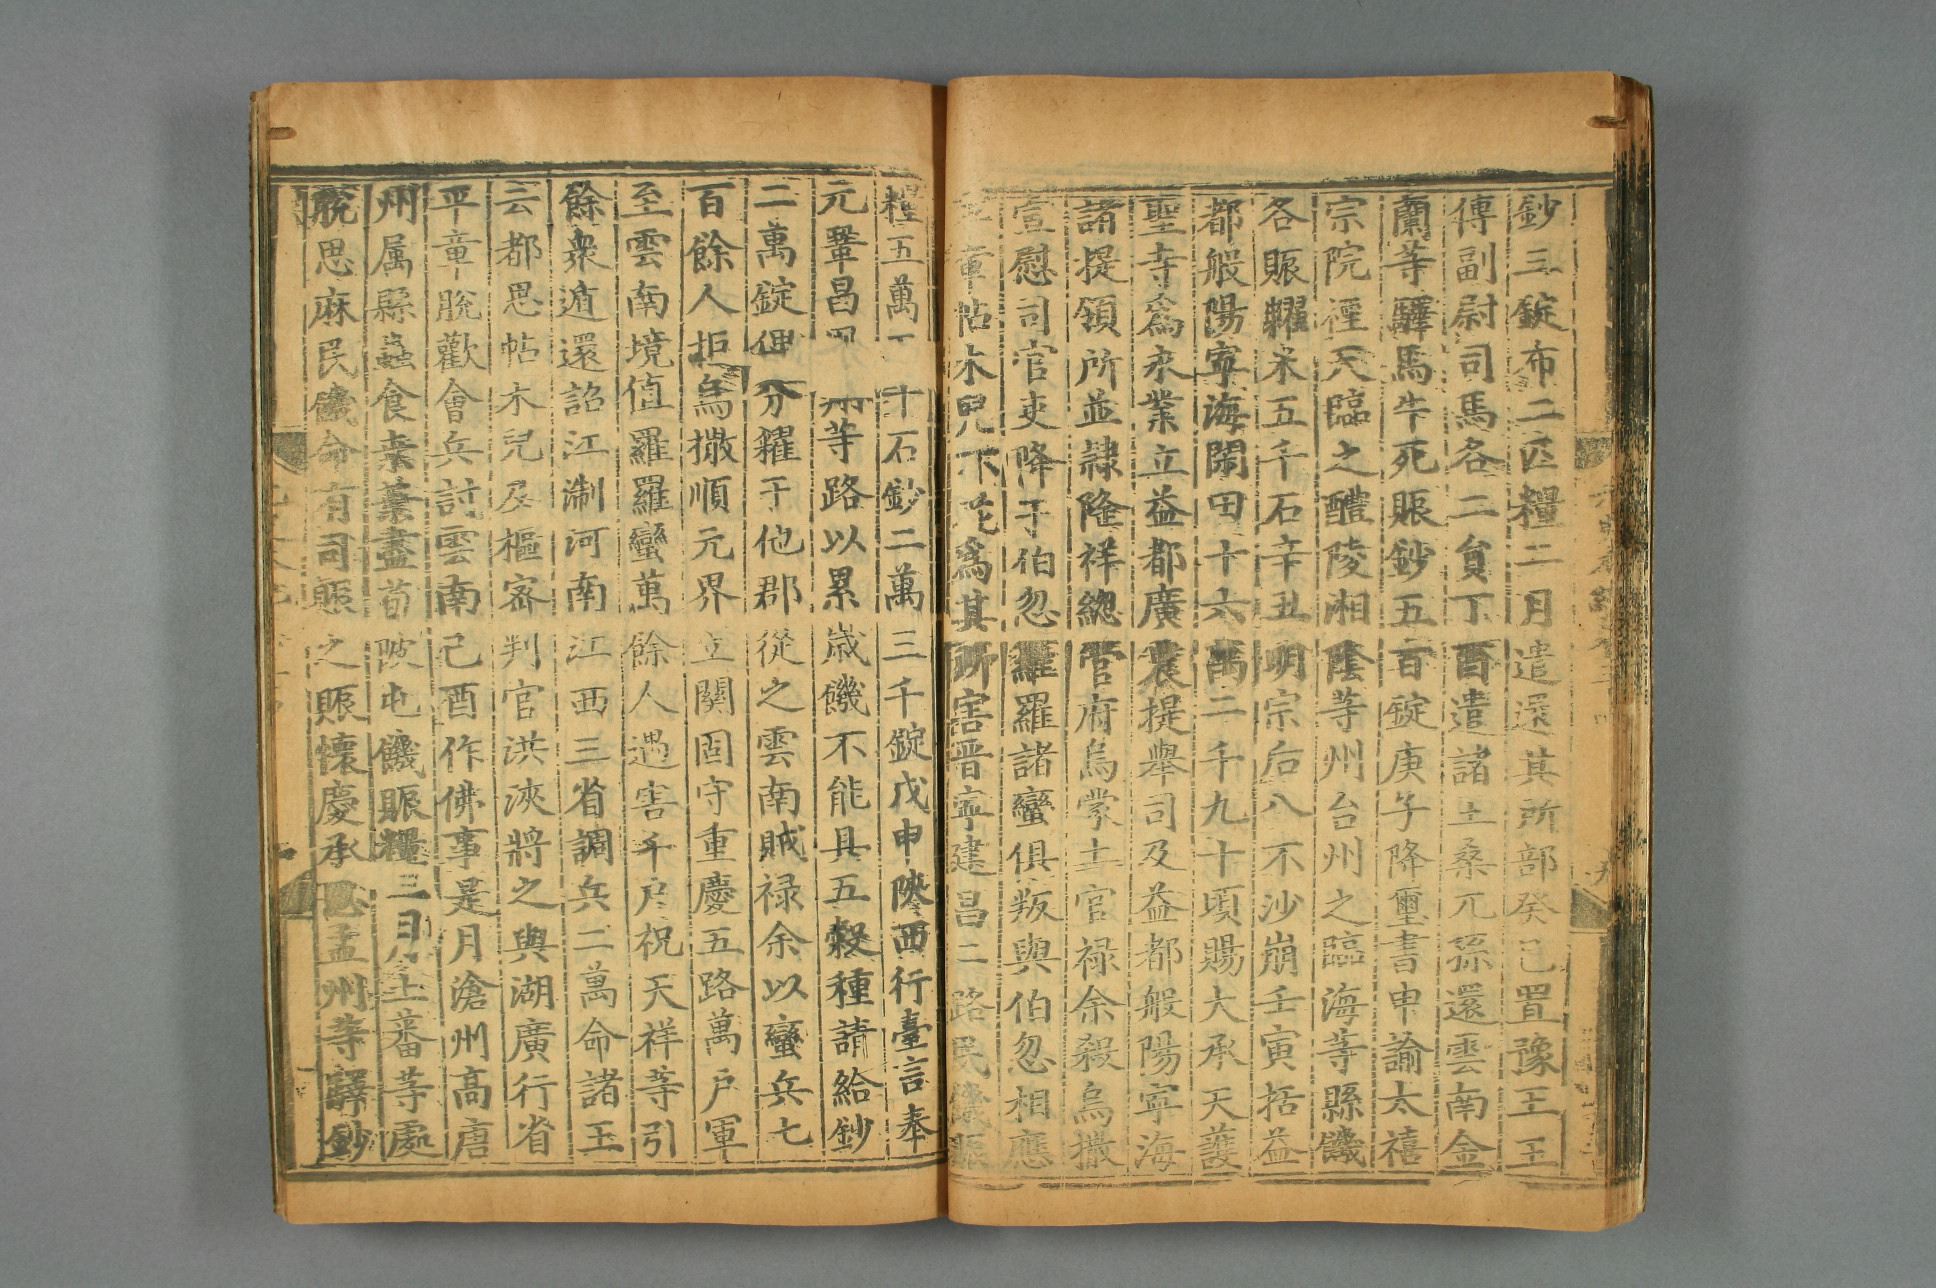 鈔三錠布二匹糧二月遣還其所部癸已置豫王王
傅副尉司馬各二員丁酉遣諸王桑兀孫還雲南金
蘭等驛馬牛死賑鈔五百錠庚子降璽書申諭太禧
宗院徑天臨之醴陵湘陰等州台州之臨海等縣饑
各賑糶米五千石辛丑明宗后八不沙崩壬寅括益
都般陽寧海閑田十六萬二千九十頃賜大承天護
聖寺爲永業立益都廣農提舉司及益都般陽寧海
諸提領所並隷隆祥緫管府烏蒙土官禄余殺烏撒
宣慰司官吏降于伯忽羅羅諸蠻俱叛與伯忽相應
平章帖木兒不花爲其所害晉寧建昌二路民饑賑
糧五萬 十石鈔二萬三千錠戊申陝西行臺言奉
元鞏昌 等路以累歲饑不能具五榖種請給鈔
二萬錠俾分糴于他郡從之雲南賊禄余以蠻兵七
百餘人拒烏撒順元界立關固守重慶五路萬戶軍
至雲南境值羅羅蠻萬餘人遇害千戶祝天祥等引
餘衆遁還詔江浙河南江西三省調兵二萬命諸王
云都思帖木兒及樞密判官洪浹將之與湖廣行省
平章脫歡會兵討雲南己酉作佛事是月滄州高唐
州属縣蟲食桑葉盡芍陂屯饑賑糧三月土番等處
脫思麻民饑命有司賑之賑懷慶承恩孟州等驛鈔